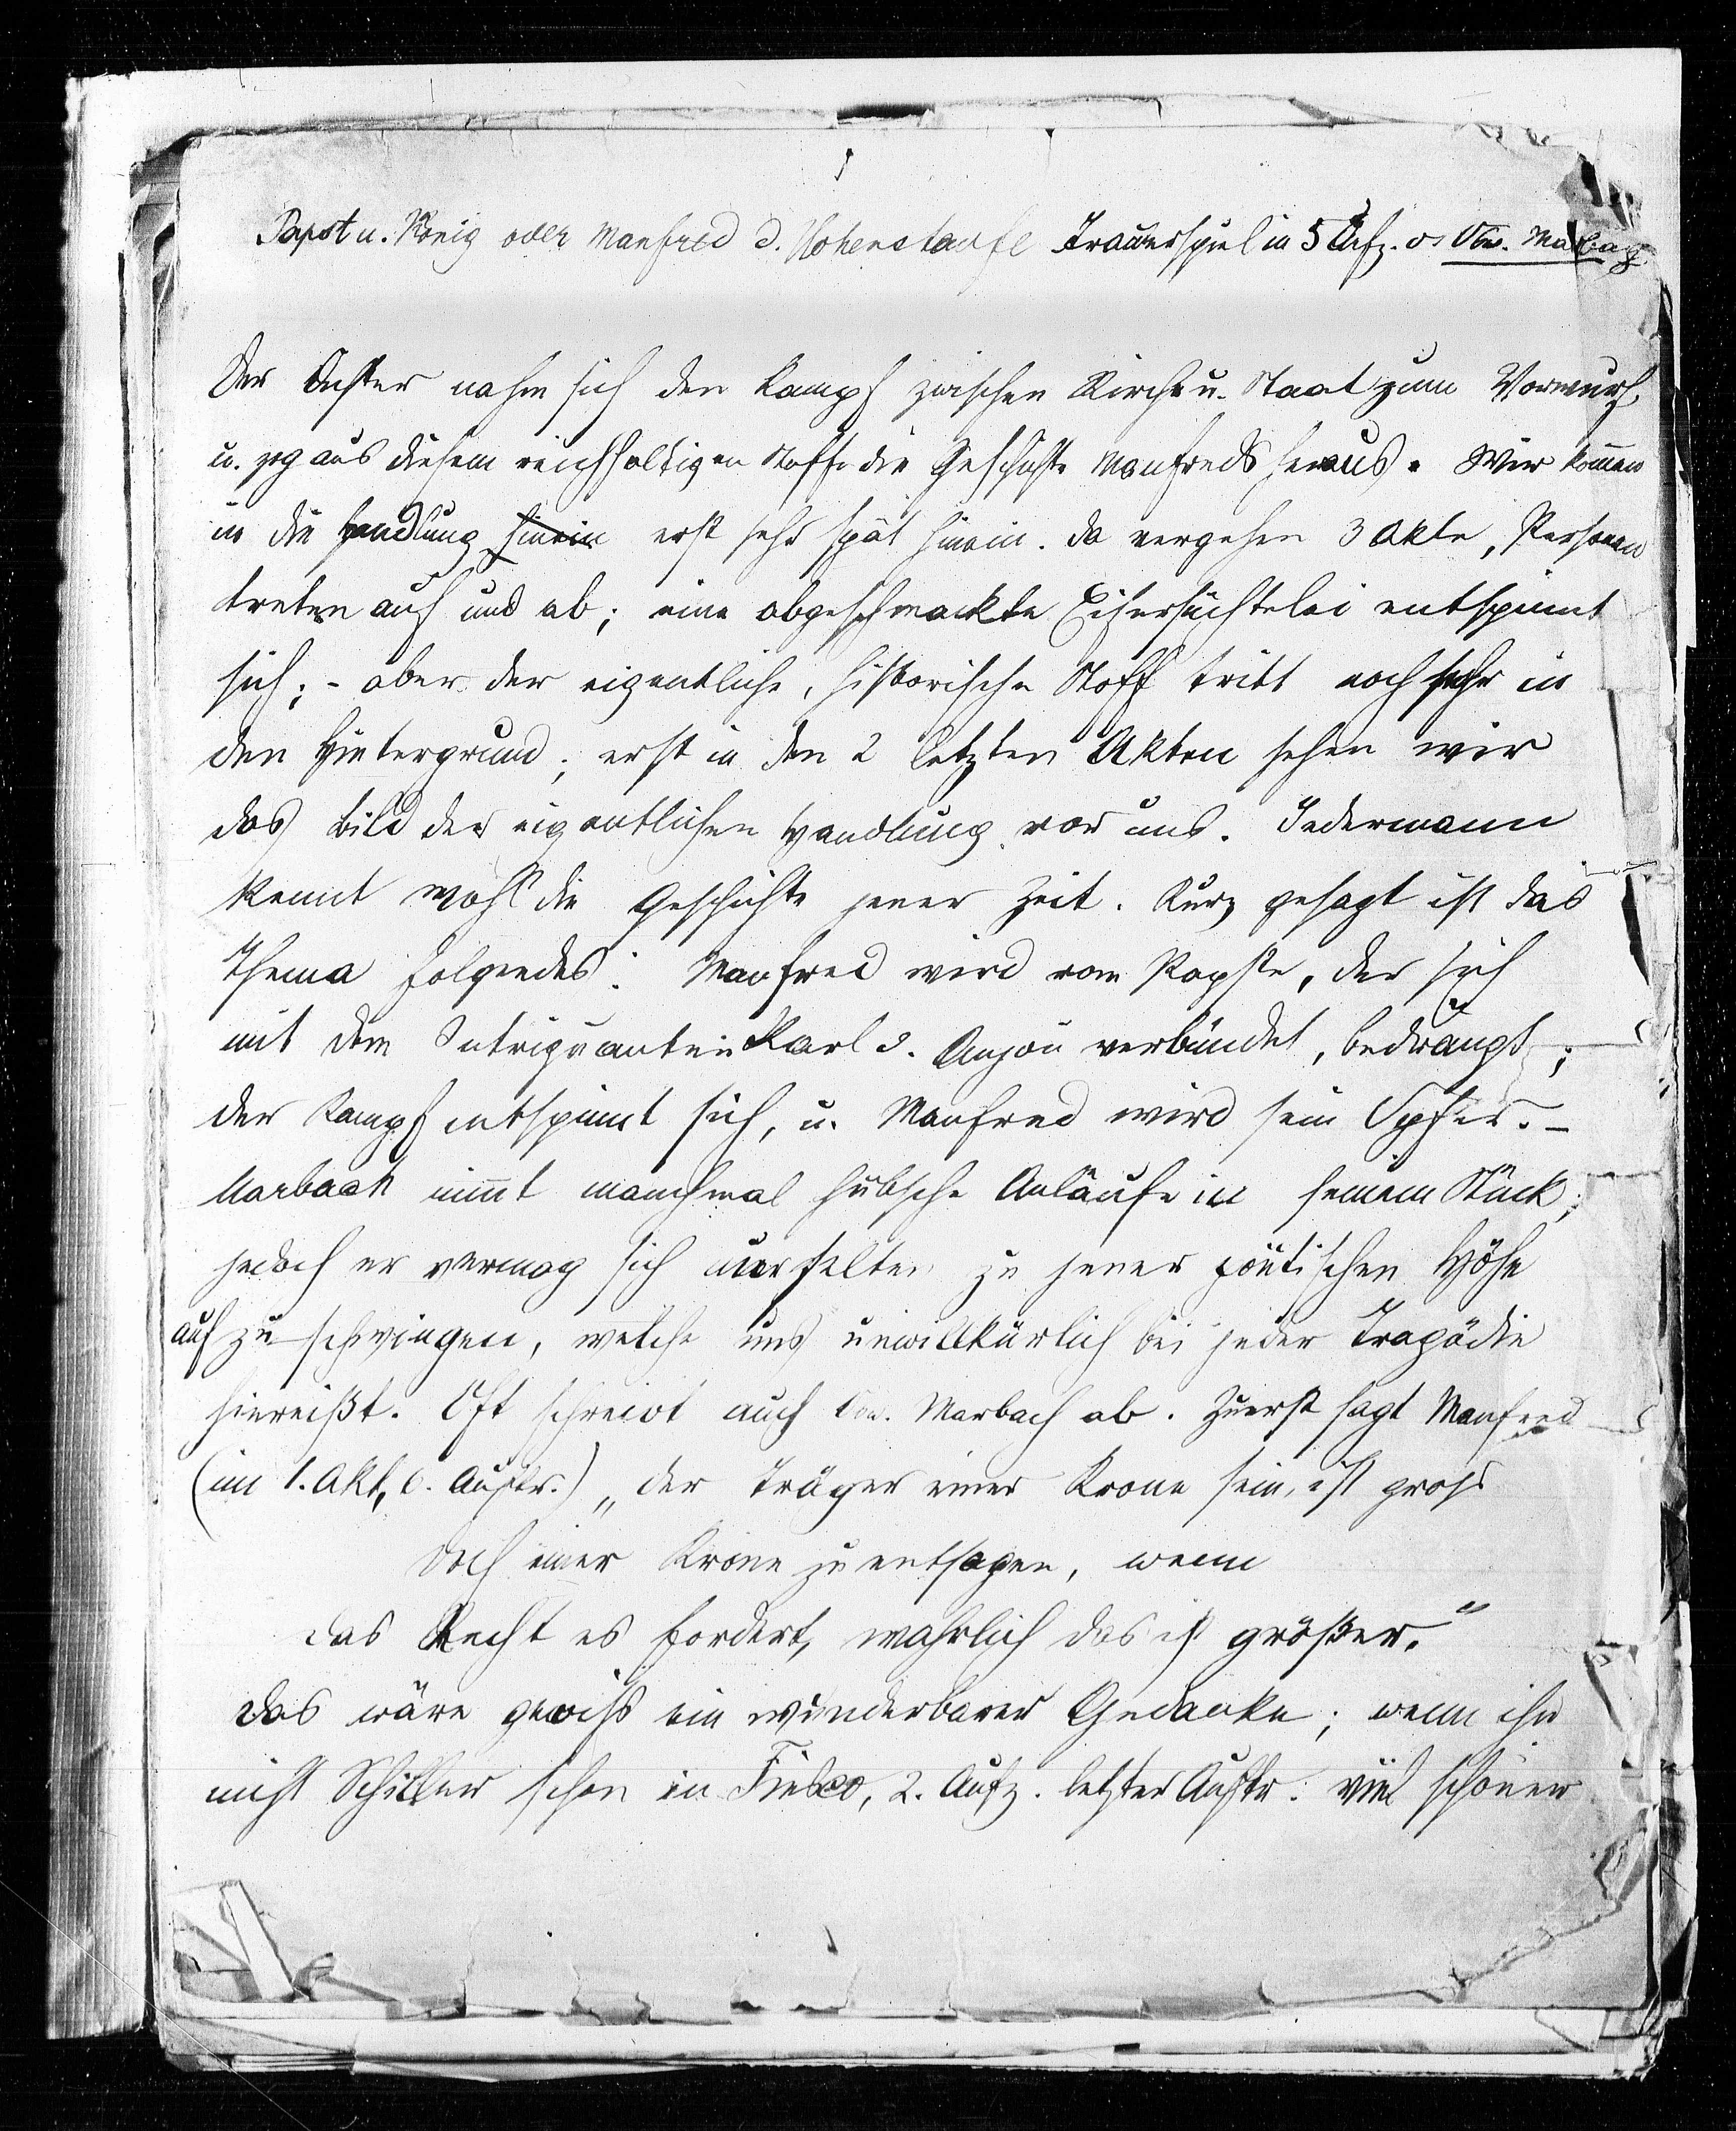 Papst u. König oder Manfred d. Hohenstaufe Trauerspiel in 5 Aufz. v. Osw. Marbach
Der Dichter nahm sich den Kampf zwischen Kirche u. Staat zum Vorwurf,
u. zog aus diesem reichhaltigen Stoffe die Geschichte Manfreds heraus. Wir kom̄en
in die Handlung hinein erst sehr spät hinein. Da vergehen 3 Akte, Personen
treten auf und ab; eine abgeschmackte Eifersüchtelei entspinnt
sich; - aber der eigentliche, historische Stoff tritt noch sehr in
den Hintergrund; erst in den 2 letzten Akten sehen wir
das Bild der eigentlichen Handlung vor uns. Jedermann
kennt wohl die Geschichte jener Zeit. Kurz gesagt ist das
Thema folgendes: Manfred wird vom Papste, der sich
mit dem Intriguanten Karl v. Anjou verbündet, bedrängt;
der Kampf entspinnt sich, u. Manfred wird sein Opfer. –
Marbach nim̄t manchmal hübsche Anläufe in seinem Stück;
jedoch er vermag sich nur selten zu jener poëtischen Höhe
auf zu schwingen, welche uns unwillkürlich bei jeder Tragödie
hinreißt. Oft schreibt auch Osw. Marbach ab. Zuerst sagt Manfred
(im 1. Akt, 6. Auftr.) „der Träger einer Krone sein, ist gross
doch einer Krone zu entsagen, wenn
das Recht es fordert, wahrlich das ist größer.“
Das wäre gewiss ein wunderbarer Gedanke; wenn ihn
nicht Schiller schon in Fiesco, 2. Aufz. letzter Auftr. viel schöner